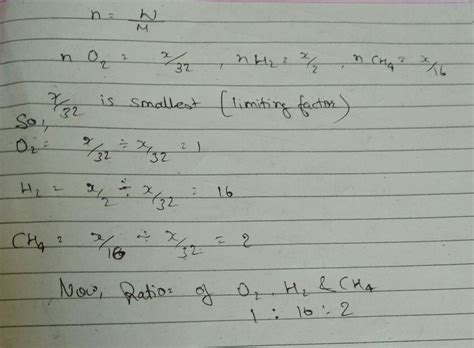 n = W/M
n O2 = x/32 , n H2 = x/2 , n CH4 = x/16
x/32 is smallest (limiting factor)
So,
O2 = x/32 ÷ x/32 = 1
H2 = x/2 ÷ x/32 = 16
CH4 = x/16 ÷ x/32 = 2
Now, Ratios of O2, H2 & CH4
1 : 16 : 2